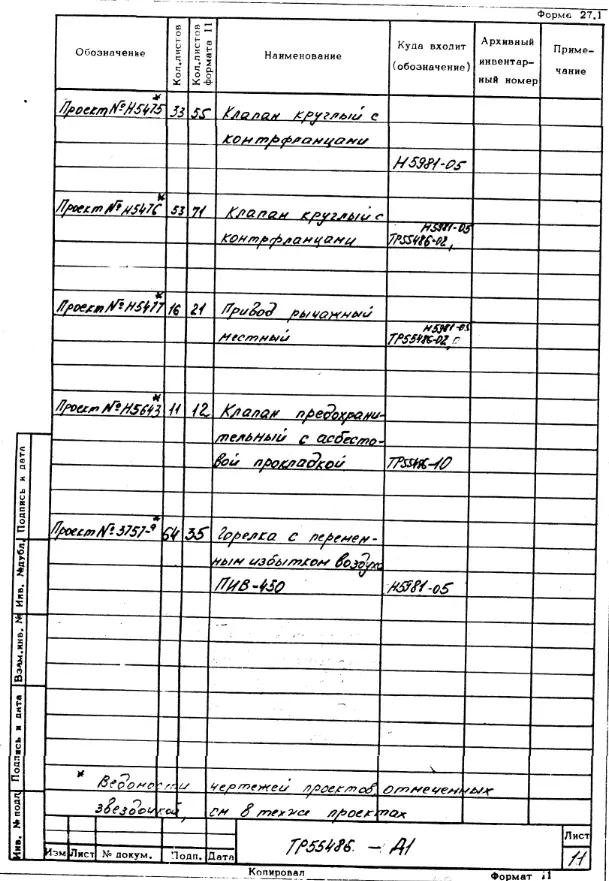 Форма 27.1
Обозначение Кол.листов Кол.листов формата 11 Наименование Куда входит (обозначение) Архивный инвентарный номер Примечание
Проект №Н5475* 33 55 Клапан круглый с
контрфланцами
Н5981-05
Проект №Н5476* 53 71 Клапан круглый с Н5981-05
контрфланцами ТР55486-02,
Проект №Н5477* 16 21 Привод рычажный Н5981-05
местный ТР55486-02,
Проект №Н5643* 11 12 Клапан предохрани-
тельный с асбесто-
вой прокладкой ТР55486-10
Проект №3757-9* 64 35 Горелка с перемен-
ным избытком воздух
ПИВ-450 Н5981-05
* Ведомости чертежей проектов отмеченных
звездочкой, см в тех же проектах
Инв. № подл
Подпись и дата
Взам.инв. №
Инв. №дубл.
Подпись и дата
Изм Лист № докум. Подп. Дата
ТР55486. - Д1
Лист
11
Копировал Формат 11